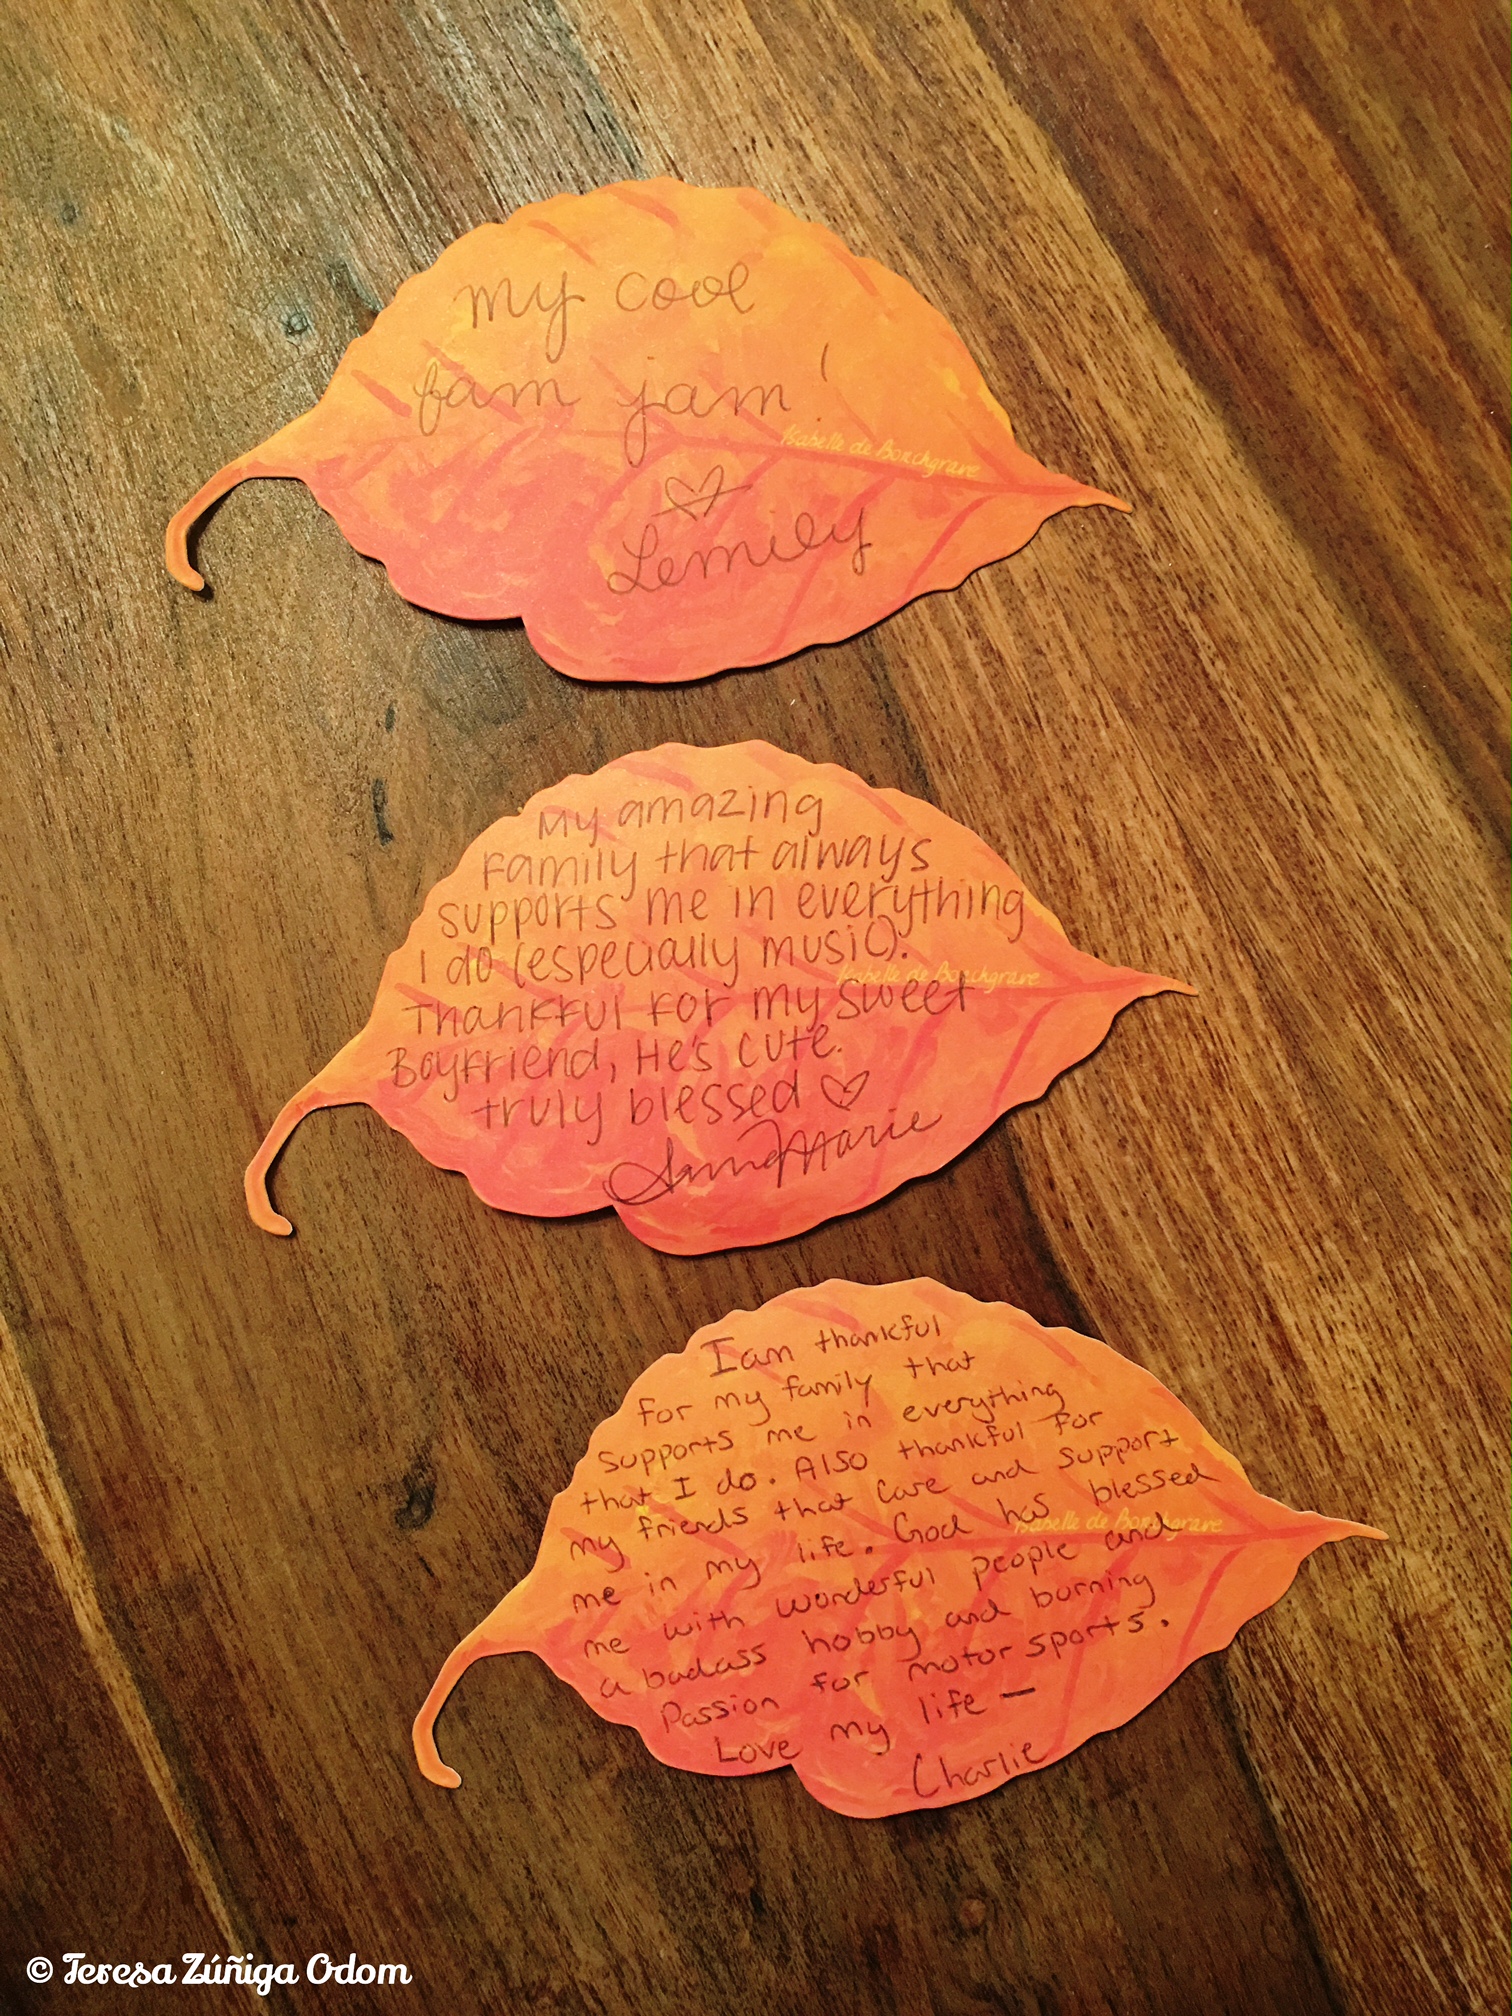 my cool
fam jam!
Isabelle de Borchgrave
Lemily
My amazing
Family that always
supports me in everything
I do (especially music).
Thankful for my sweet
Isabelle de Borchgrave
Boyfriend, He's cute.
truly blessed
AnneMarie
I am thankful
for my family that
supports me in everything
that I do. Also thankful for
my friends that care and support
me in my life. God has blessed
Isabelle de Borchgrave
me with wonderful people and
a badass hobby and burning
Passion for motorsports.
Love my life —
Charlie
© Teresa Zúñiga Odom